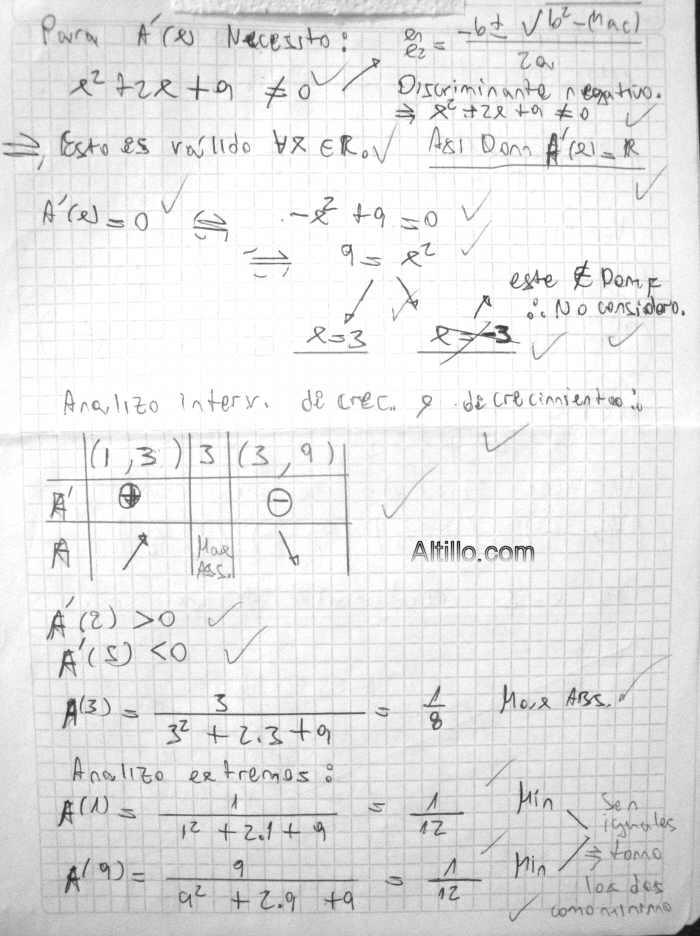 Para A'(x) Necesito: x1 x2 = -b ± √(b² - 4ac) / 2a
x² + 2x + 9 ≠ 0 ✓ Discriminante negativo.
⇒ x² + 2x + 9 ≠ 0 ✓
⇒, Esto es válido ∀x ∈ R. ✓ Asi Dom A'(x) = R ✓
A'(x) = 0 ✓ ⇔ -x² + 9 = 0 ✓
⇔ 9 = x² ✓
este ∉ Dom f
∴ No considero. ✓
x = 3 ✓ x = -3 ✓
Analizo interv. de crec. y decrecimiento: ✓
(1, 3) 3 (3, 9)
A' ⊕ ⊖ ✓
A ↗ Max Abs. ↘
Altillo.com
A'(2) > 0 ✓
A'(5) < 0 ✓
A(3) = 3 / (3² + 2.3 + 9) = 1/8 Max Abs. ✓
Analizo extremos:
A(1) = 1 / (1² + 2.1 + 9) = 1/12 ✓ Min
A(9) = 9 / (9² + 2.9 + 9) = 1/12 ✓ Min
Son
iguales
⇒ tomo
los dos
como minimo ✓